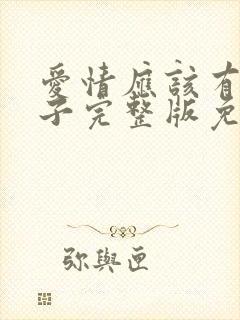 愛情應該有
子完整版免
弥與匣